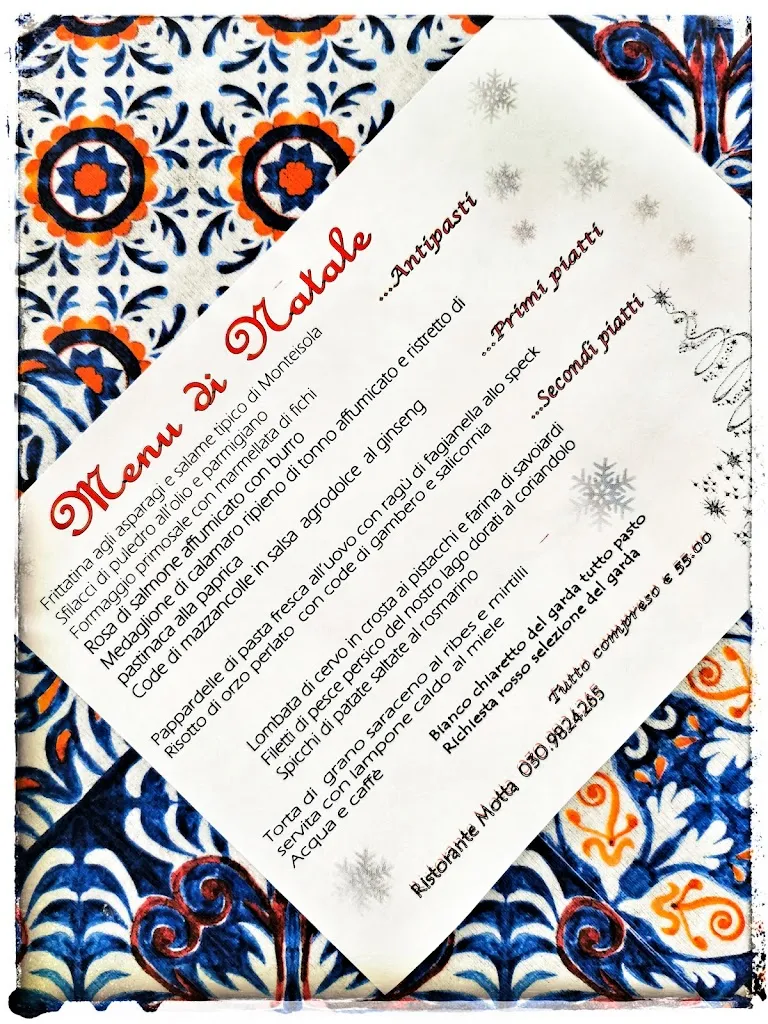 Menu di Natale
...Antipasti
Frittatina agli asparagi e salame tipico di Monteisola
Sfilacci di puledro all'olio e parmigiano
Formaggio primosale con marmellata di fichi
Rosa di salmone affumicato con burro
Medaglione di calamaro ripieno di tonno affumicato e ristretto di
pastinaca alla paprica
Code di mazzancolle in salsa agrodolce al ginseng
...Primi piatti
Pappardelle di pasta fresca all'uovo con ragù di fagianella allo speck
Risotto di orzo perlato con code di gambero e salicornia
...Secondi piatti
Lombata di cervo in crosta ai pistacchi e farina di savoiardi
Filetti di pesce persico del nostro lago dorati al coriandolo
Spicchi di patate saltate al rosmarino
Torta di grano saraceno al ribes e mirtilli
servita con lampone caldo al miele
Acqua e caffè
Bianco chiaretto del garda tutto pasto
Richiesta rosso selezione del garda
Tutto compreso € 55.00
Ristorante Motta 030.9824265